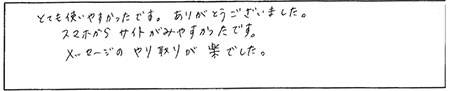 とても使いやすかったです。ありがとうございました。
スマホからサイトがみやすかったです。
メッセージのやり取りが楽でした。